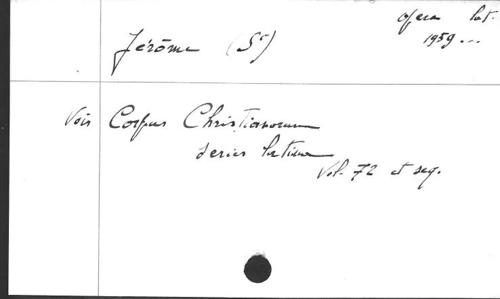 opera lat.
1959...
Jérôme (St)
Vois Corpus Christianorum
series latina
Vol. 72 et seq.